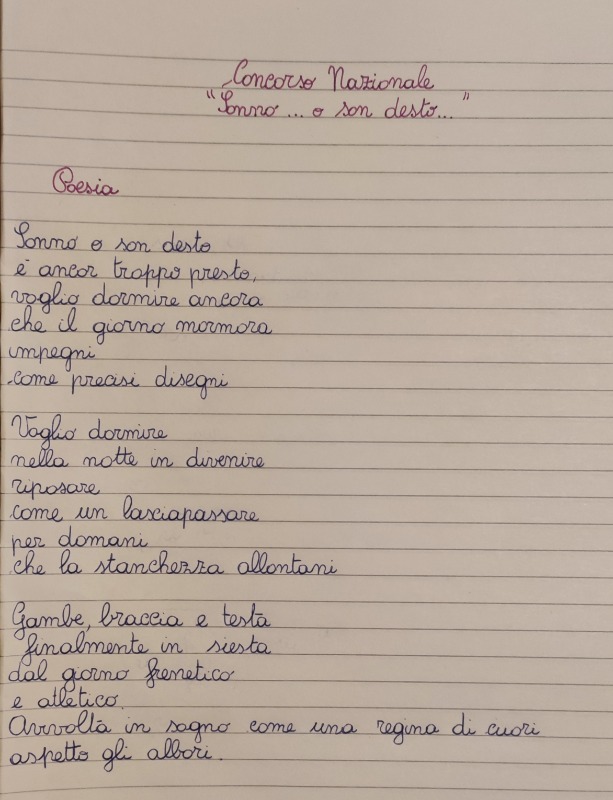 Concorso Nazionale
"Sonno... o son desto..."
Poesia
Sonno o son desto
è ancor troppo presto,
voglio dormire ancora
che il giorno mormora
impegni
come precisi disegni
Voglio dormire
nella notte in divenire
riposare
come un lasciapassare
per domani
che la stanchezza allontani
Gambe, braccia e testa
finalmente in siesta
dal giorno frenetico
e atletico.
Avvolta in sogno come una regina di cuori
aspetto gli albori.